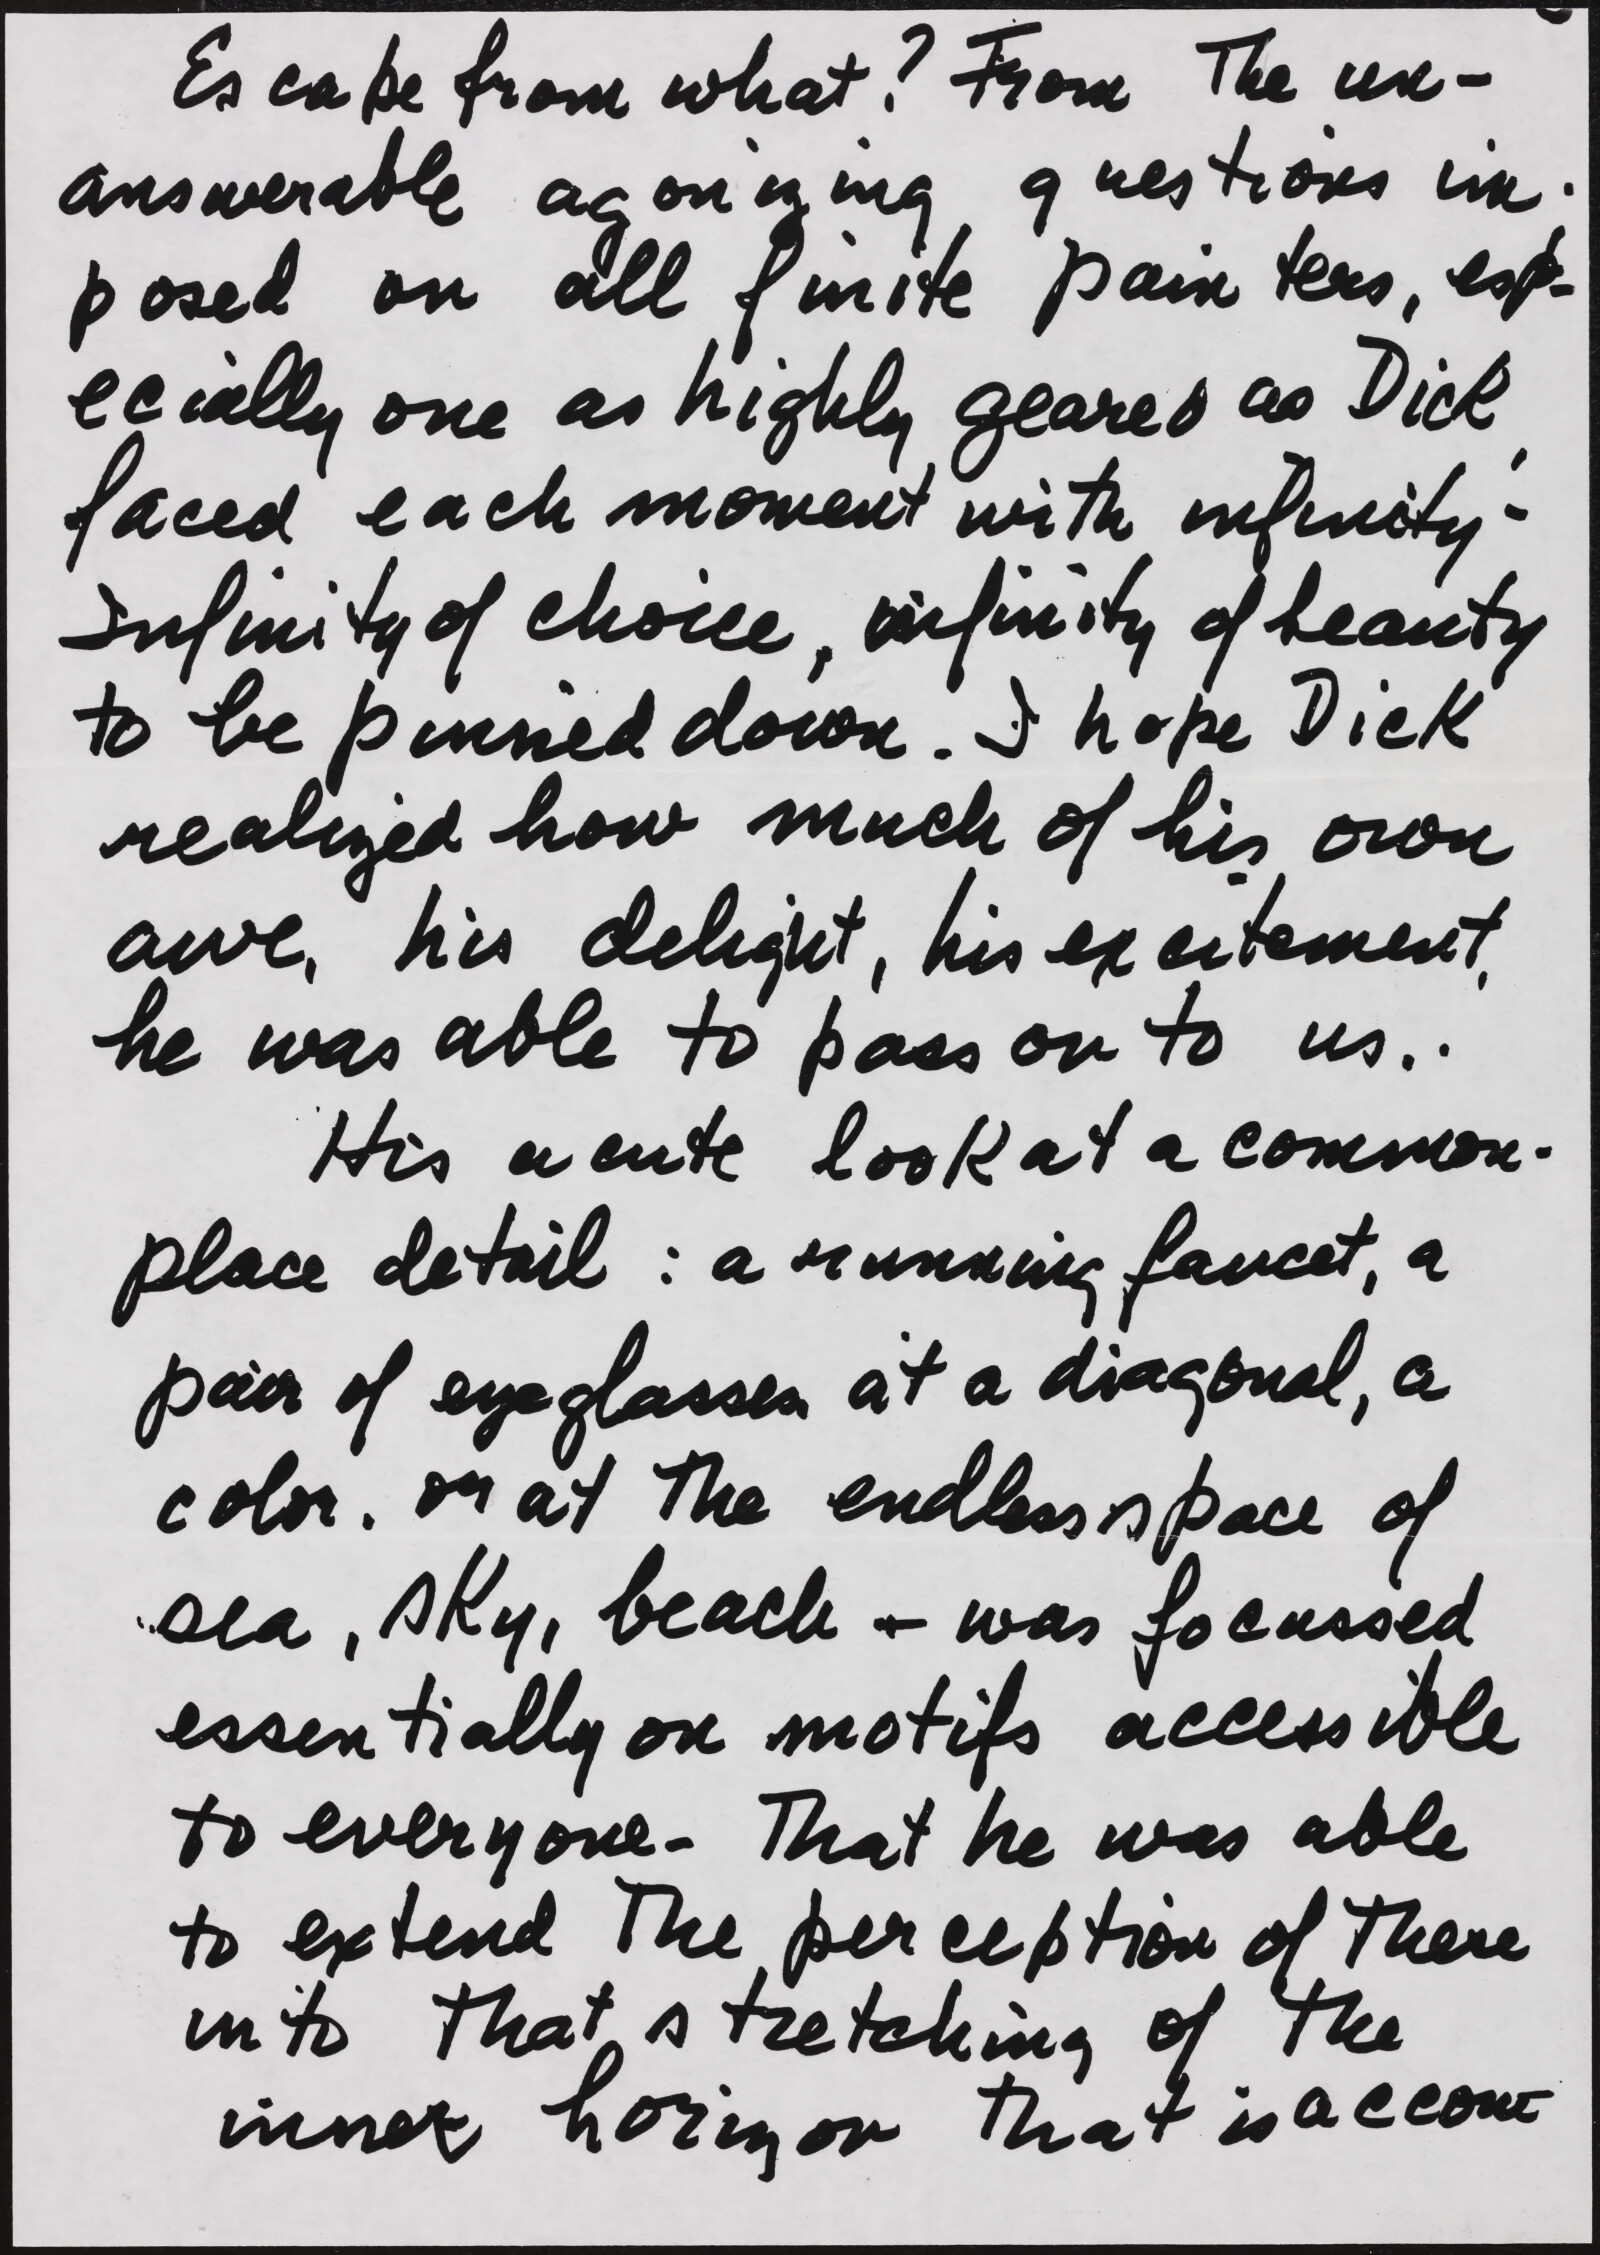 Escape from what? From The un-
answerable agonizing questions im-
posed on all finite painters, esp-
ecially one as highly geared as Dick,
faced each moment with infinity -
Infinity of choice, infinity of beauty
to be pinned down. I hope Dick
realized how much of his own
awe, his delight, his excitement,
he was able to pass on to us..
His acute look at a common-
place detail : a running faucet, a
pair of eyeglasses at a diagonal, a
color. or at The endless space of
sea, sky, beach - was focussed
essentially on motifs accessible
to everyone - That he was able
to extend The perception of These
into That stretching of The
inner horizon That is accom-